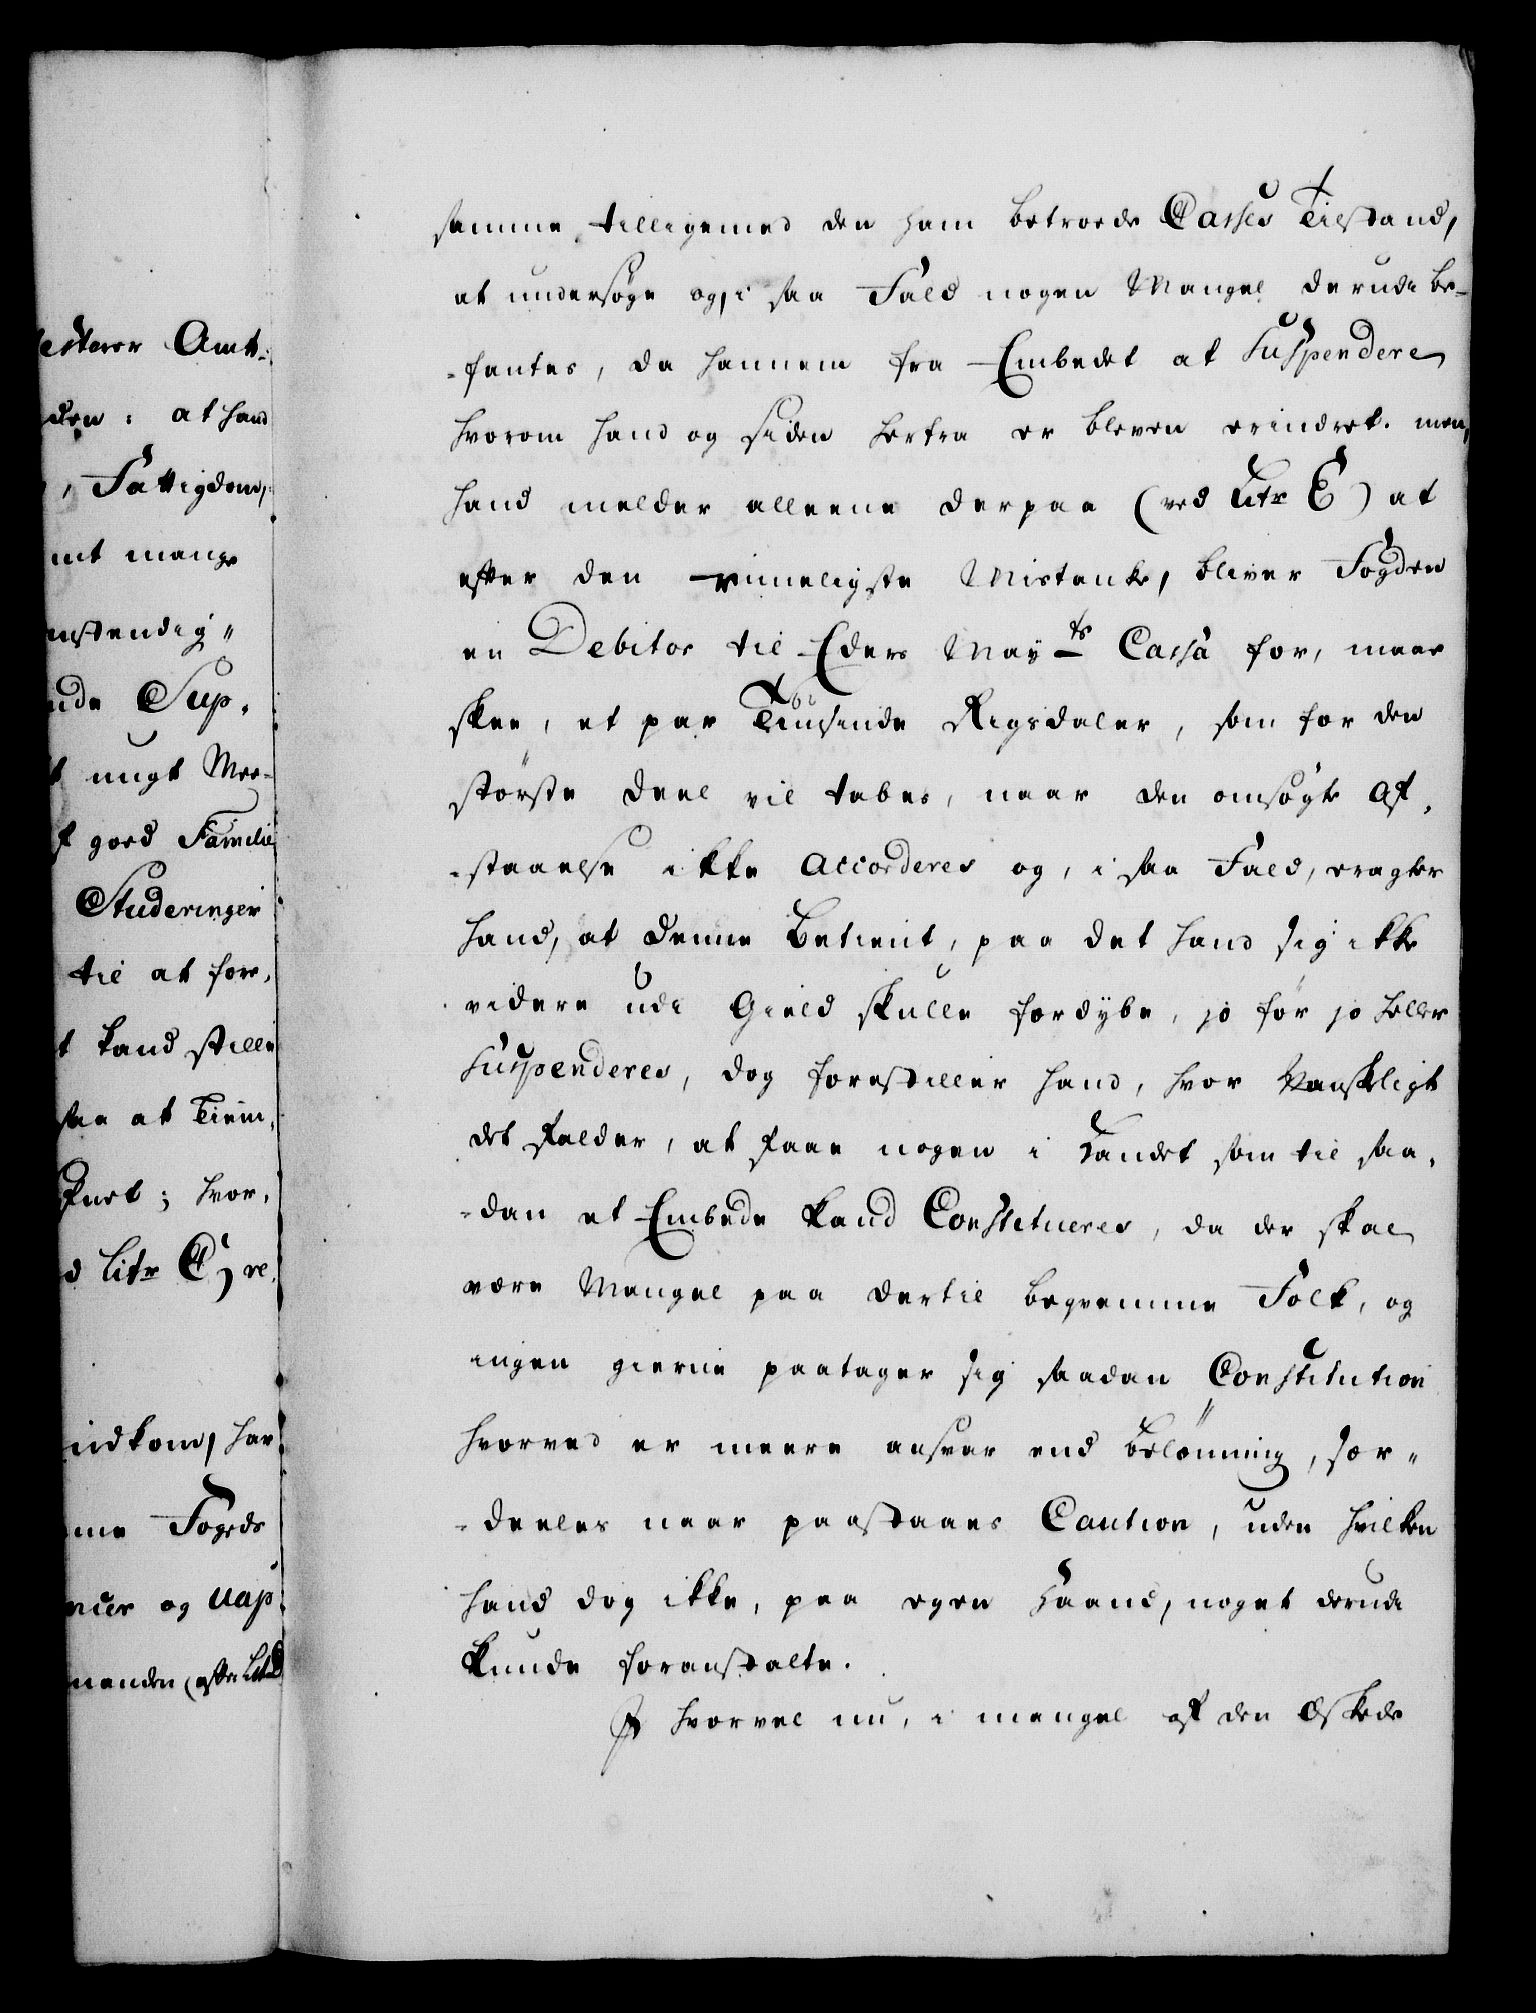 esterer Amt-
den: at hand
, Fattigdom,
mt mange
nstendig-
nde Sup-
t ungt Men-
f goed Familie
Studeringer
til at fore-
t kand stille
saa at Tienn-
sket; hvor-
d Litr C, re-
indkom, har
me Fogeds
ncier og uap-
manden (efter Litr D
samme, tilligemed den ham betroede Casses Tilstand,
at undersøge og, i saa Fald nogen Mangel derudi be-
-fantes, da hannem fra Embedet at Suspendere
hvorom hand og siden herfra er bleven erindret. men,
hand melder alleene derpaa (ved Litr E) at
efter den rimeligste Mistanke, bliver Fogden
en Debitor til Eders May.ts Cassa for, maae
skee, et par Tusinde Rigsdaler, som for den
største deel vil tabes, naar den omsøgte Af-
-staaelse ikke Accorderes og, i saa Fald, eragter
hand, at denne Betient, paa det hand sig ikke
videre udi Gield skulle fordybe, jo før jo heller
Suspenderes, dog forestiller hand, hvor Vanskeligt
det falder, at faae nogen i Landet som til saa-
-dan et Embede kand Constitueres, da der skal
være Mangel paa dertil beqvemme Folk, og
ingen gierne paatager sig saadan Constitution
hvorved er meere ansvar end Belønning, sær-
-deeles naar paastaaes Caution, uden hvilken
hand dog ikke, paa egen Haand, noget derudi
kunde foranstalte.
I hvorvel nu, i mangel af den Æskede